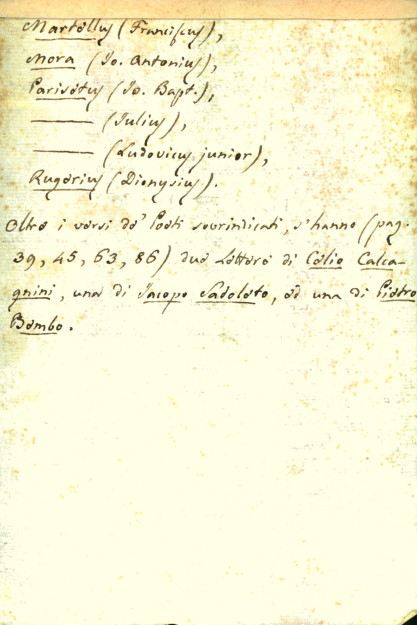 Martellus (Franciscus),
Mora (Jo. Antonius),
Parisetus (Jo. Bapt.),
——— (Julius),
——— (Ludovicus junior),
Rugerius (Dionysius).
Oltre i versi de' Poeti sovrindicati, s'hanno (pag.
39, 45, 63, 86) due Lettere di Celio Calca-
gnini, una di Jacopo Sadoleto, ed una di Pietro
Bembo.